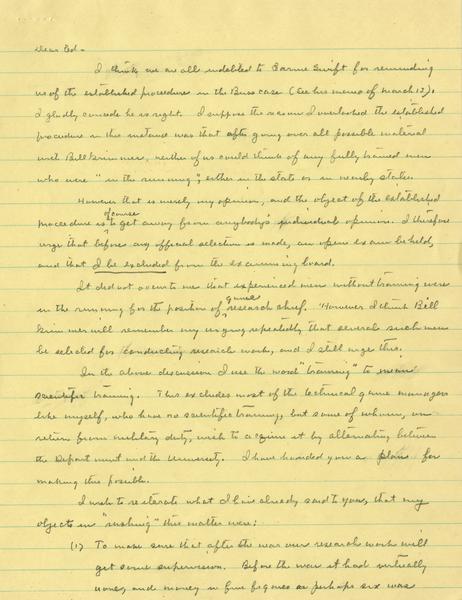 Dear Ed -
I think we are all indebted to Ernie Swift for reminding
us of the established procedure in the Buss case (See his memo of March 12).
I gladly concede he is right. I suppose the reason I overlooked the established
procedure in this instance was that after going over all possible material
with Bill Grimmer, neither of us could think of any fully trained men
who were "in the running", either in the state or in nearby states.
However that is merely my opinion, and the object of the established
procedure is of course to get away from anybody's individual opinion. I therefore
urge that before any official selection is made, an open exam be held,
and that I be excluded from the examining board.
It did not occur to me that experienced men without training were
in the running for the position of game research chief. However I think Bill
Grimmer will remember my urging repeatedly that several such men
be selected for conducting research work, and I still urge this.
In the above discussion I use the word "training" to mean
scientific training. This excludes most of the technical game managers
like myself, who have no scientific training, but some of whom, on
return from military duty, wish to acquire it by alternating between
the Department and the University. I have handed you a plan for
making this possible.
I wish to reiterate what I have already said to you, that my
objects in "rushing" this matter were:
(1) To make sure that after the war our research work will
get some supervision. Before the war it had virtually
none, and money in five figures or perhaps six was